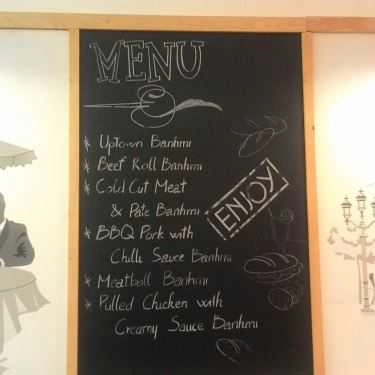 MENU
* Uptown Banhmi
* Beef Roll Banhmi
* Cold Cut Meat
& Pate Banhmi
* BBQ Pork with
Chilli Sauce Banhmi
* Meatball Banhmi
* Pulled Chicken with
Creamy Sauce Banhmi
ENJOY